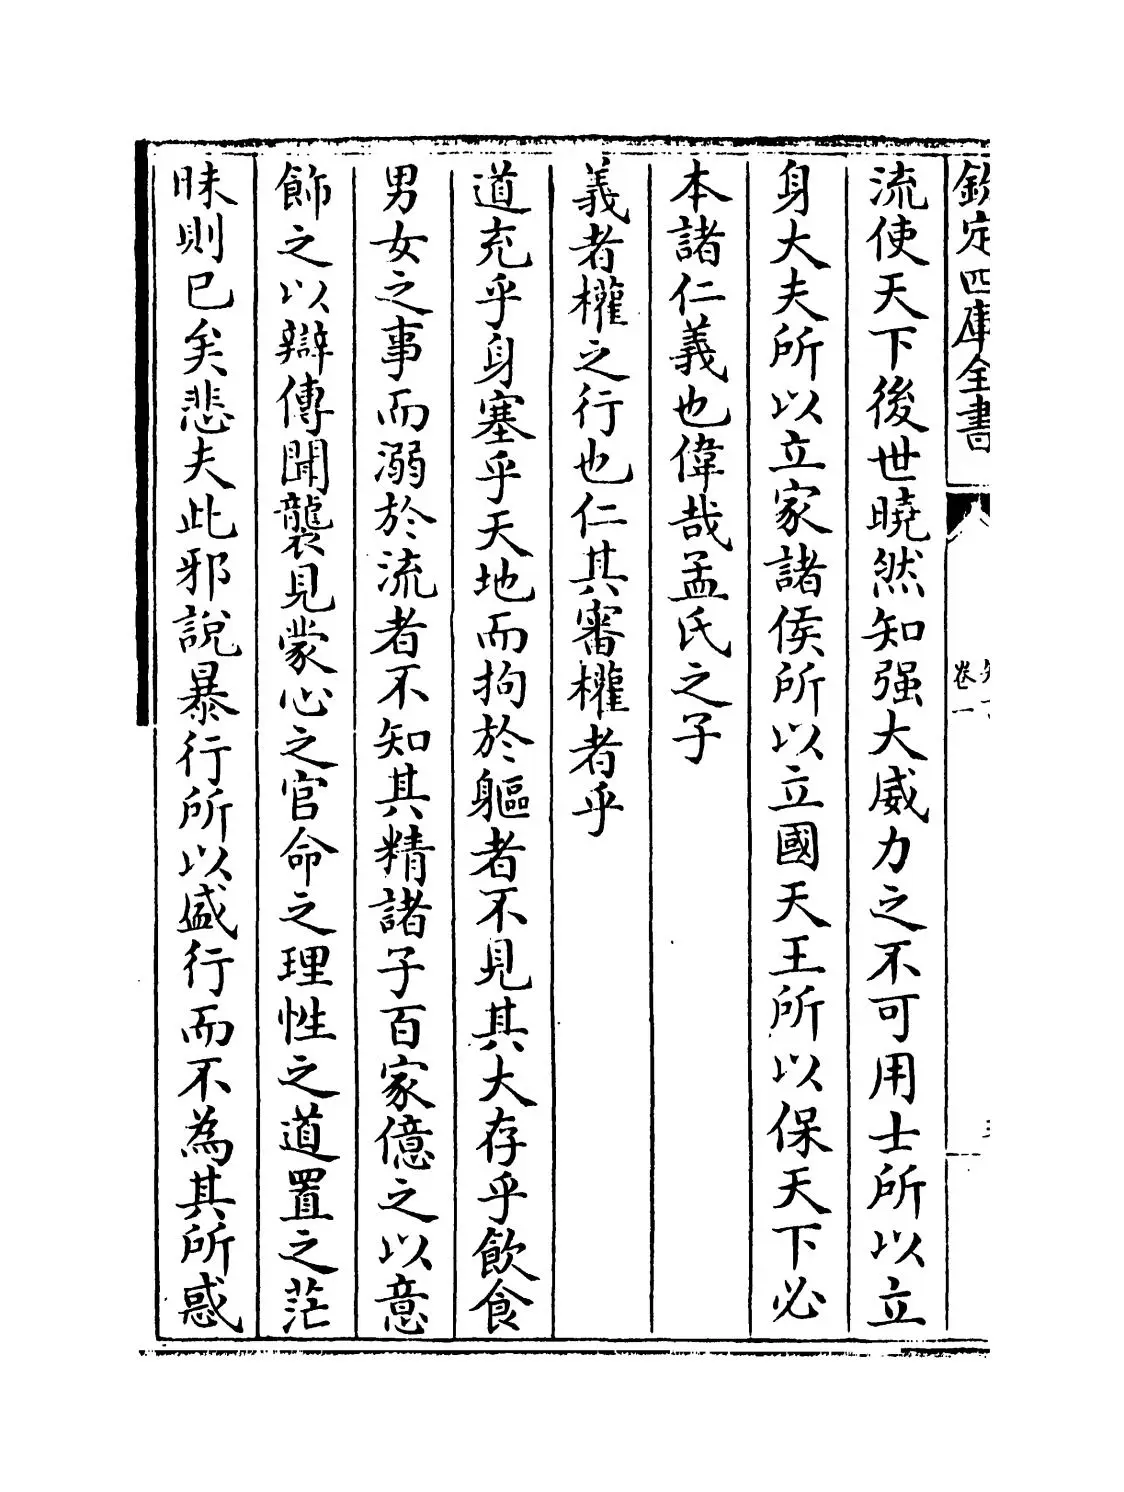 欽定四庫全書
卷一
流使天下後世曉然知强大威力之不可用士所以立
身大夫所以立家諸侯所以立國天王所以保天下必
本諸仁義也偉哉孟氏之子
義者權之行也仁其審權者乎
道充乎身塞乎天地而拘於軀者不見其大存乎飲食
男女之事而溺於流者不知其精諸子百家億之以意
飾之以辯傳聞襲見蒙心之官命之理性之道置之茫
昧則已矣悲夫此邪說暴行所以盛行而不為其所惑